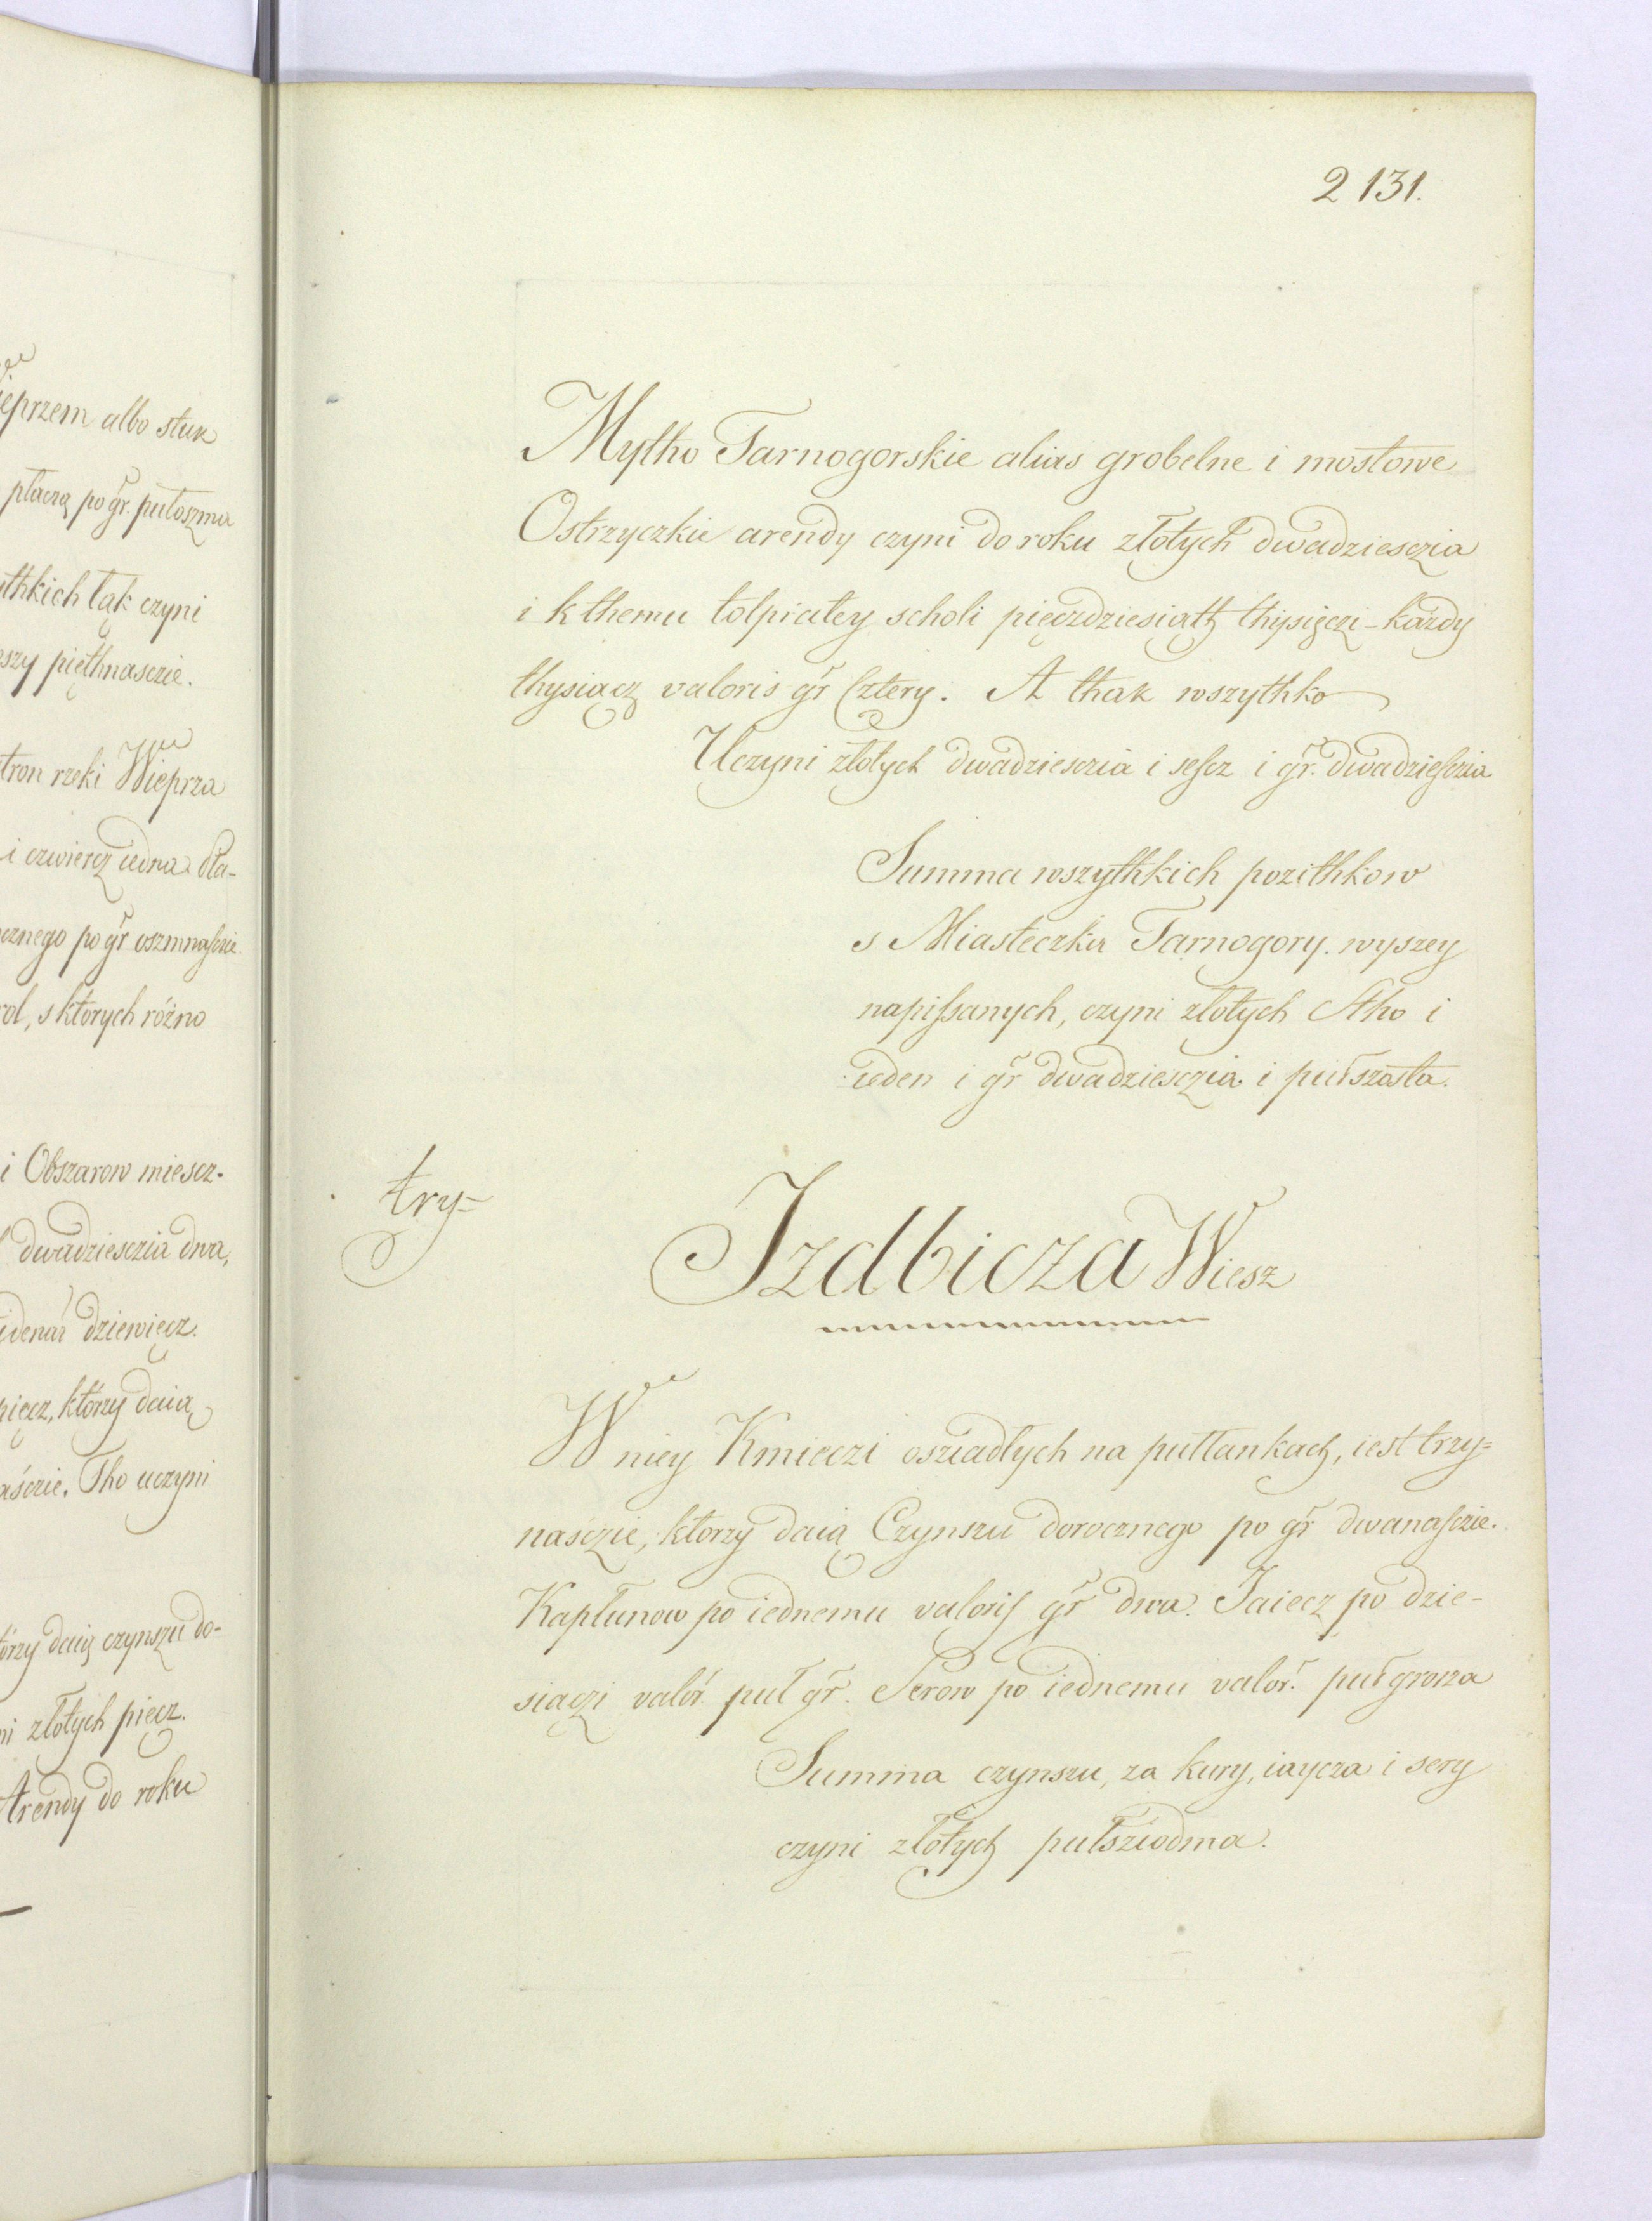 ieprzem albo stuk
płaczą po gr. pułoszma
ythkich łąk czyni
szy pięthnasczie.
tron rzeki Wieprza
i czwiercz iedna dła-
cznego po gr oszmnasczie.
rol, s których różno
i Obszarow miescz-
dwadziesczia dwa,
i denar dziewięcz.
pięcz, którzy daią
aśczie. Tho uczyni
tórzy daią czynszu do-
ni złotych pięcz.
Arendy do roku
2131.
Mytho Tarnogorskie alias grobelne i mostowe
Ostrzyczkie arendy czyni do roku złotych dwadziesczia
i k themu tolpiatey scholi pięczdziesiątt thysięczi - każdy
thysiącz valoris gr Cztery. A thak wszythko
Uczyni złotych dwadziesczia i sescz i gr. dwadziesczia
Summa wszythkich pozithkow
s Miasteczka Tarnogory. wyszey
napissanych, czyni złotych Stho i
ieden i gr dwadziesczia i pułszosta.
try=
Izdbicza Wiesz
W niey Kmieczi osziadłych na pułłankach, iest trzy=
nasczie, ktorzy daią Czynszu dorocznego po gr dwanasczie.
Kapłunow po iednemu valoris gr dwa. Jaiecz po dzie-
siączi valor. puł gr. Serow po iednemu valor. puł grosza
Summa czynszu, za kury, iaycza i sery
czyni złotych pułsziodma.